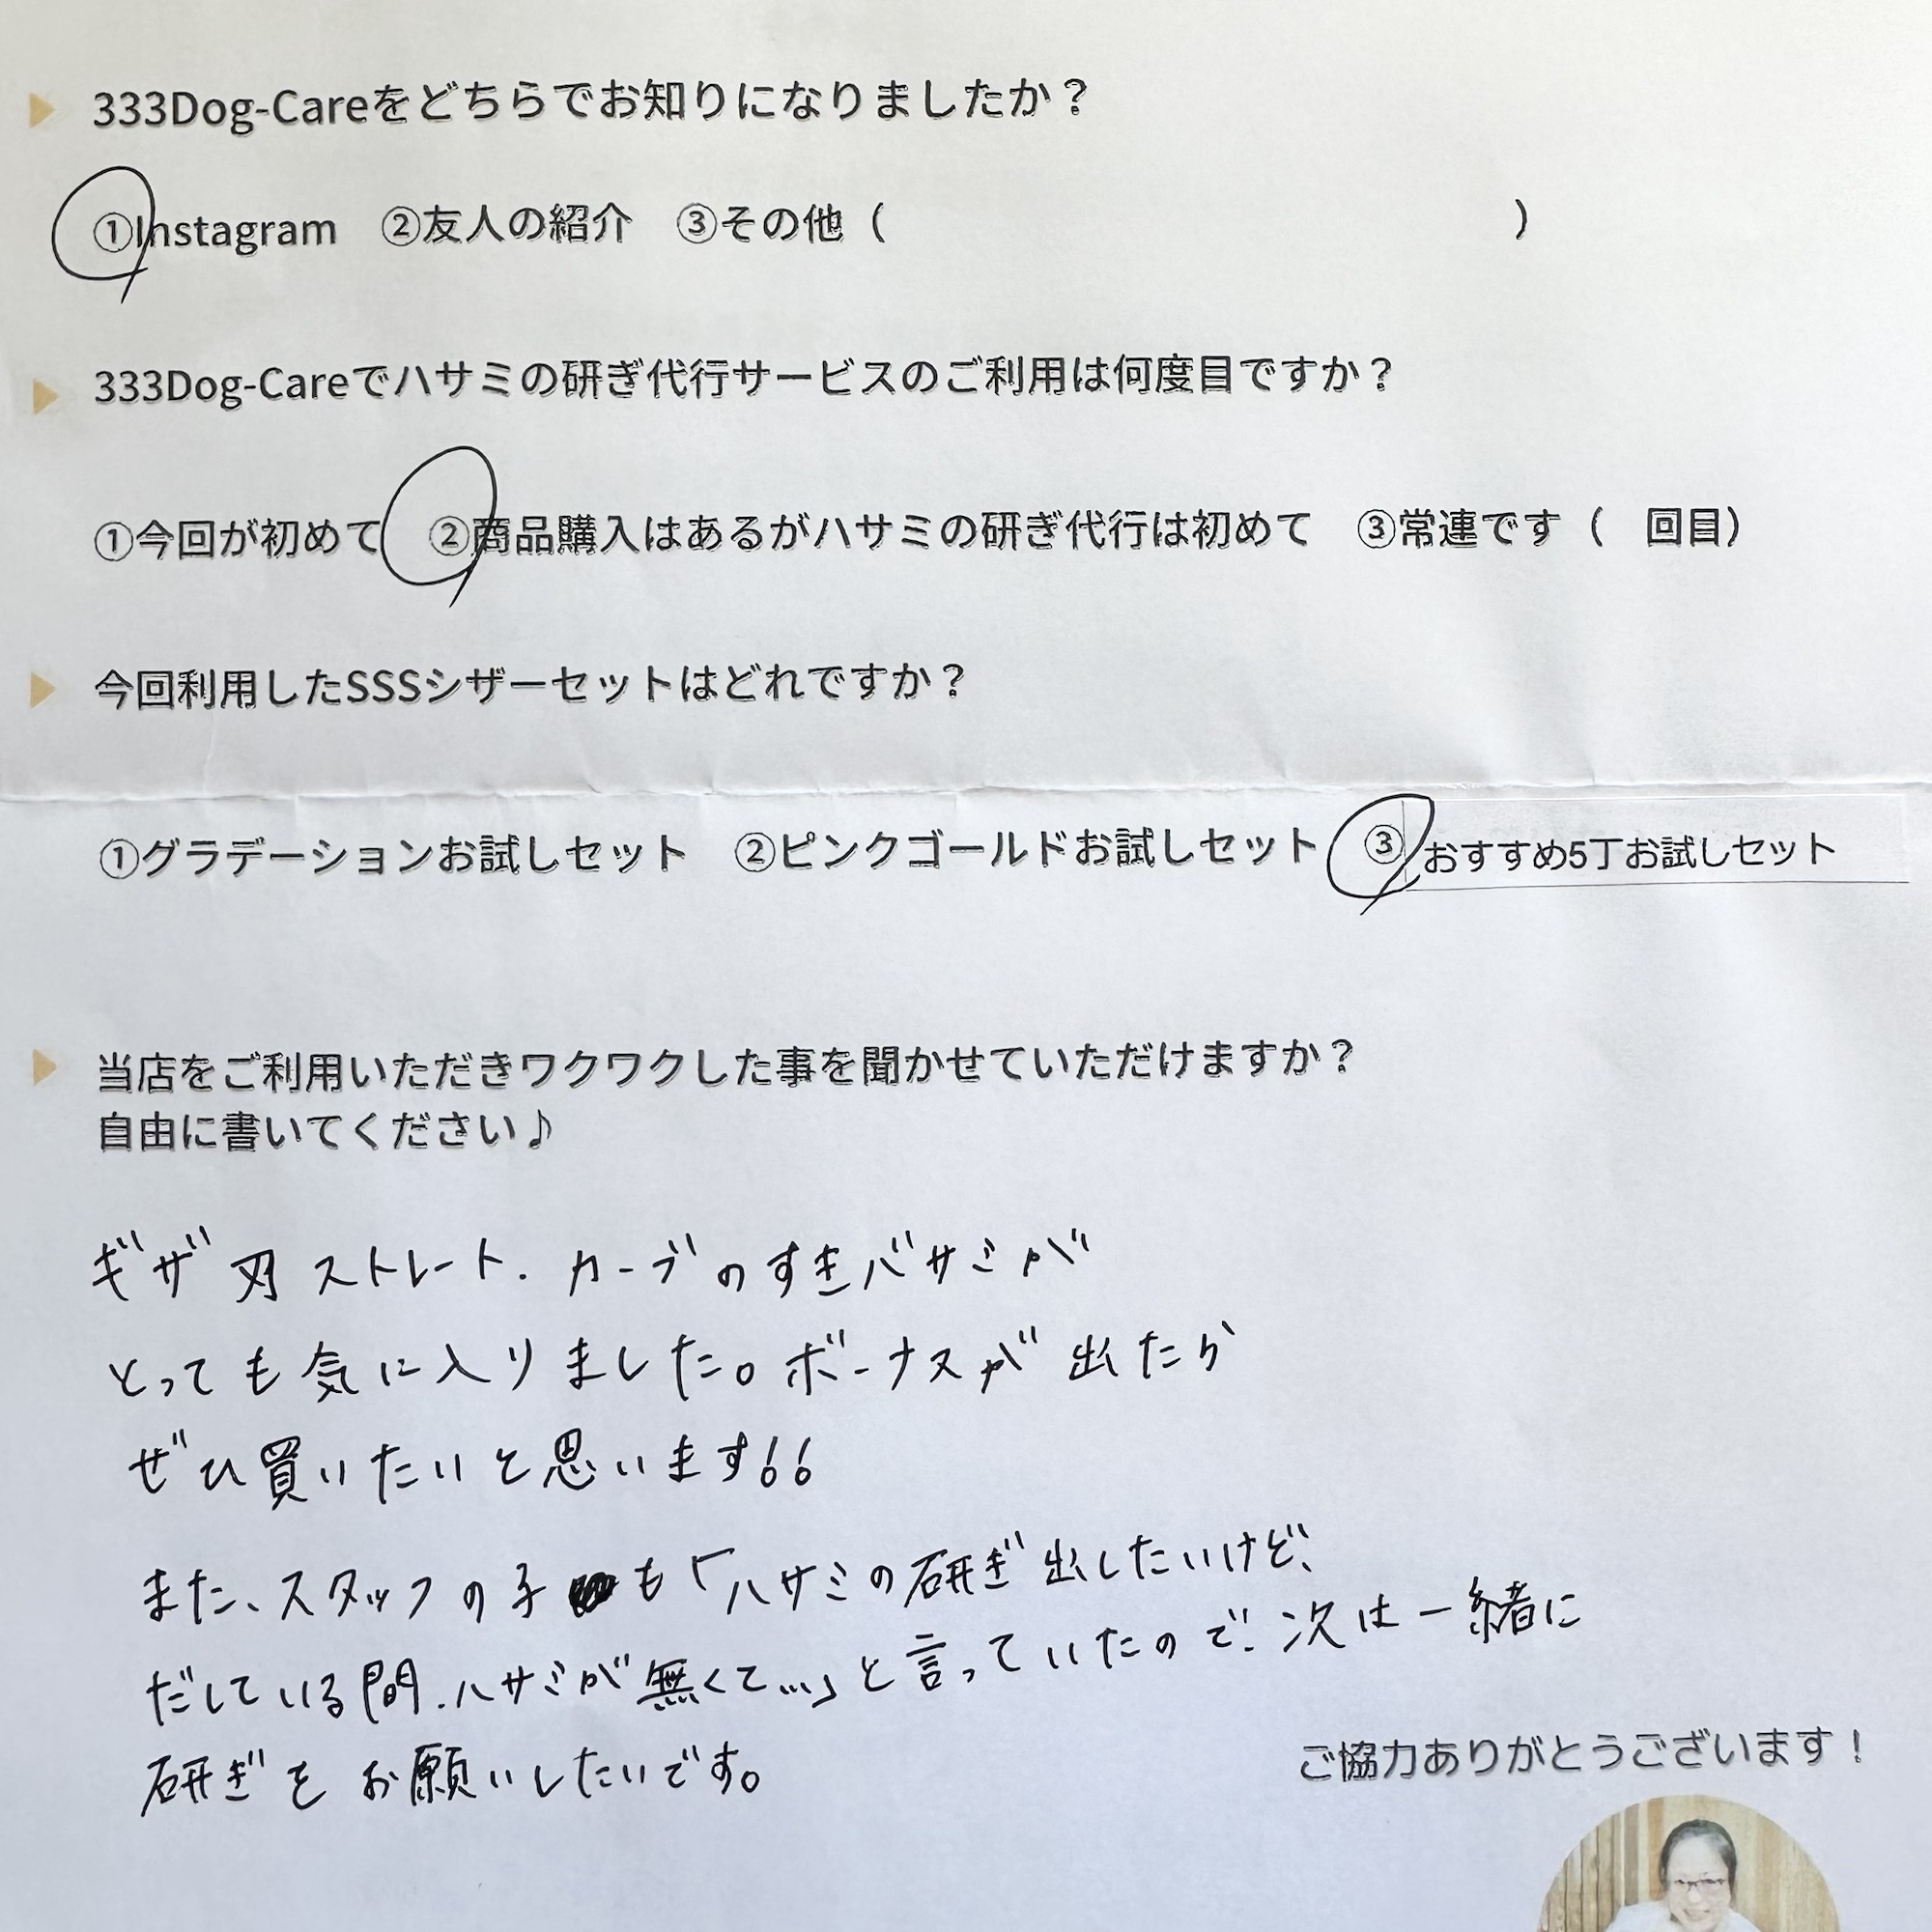 333Dog-Careをどちらでお知りになりましたか？
①Instagram　②友人の紹介　③その他（　　　　　　　　　　　　　　　）
333Dog-Careでハサミの研ぎ代行サービスのご利用は何度目ですか？
①今回が初めて　②商品購入はあるがハサミの研ぎ代行は初めて　③常連です（　回目）
今回利用したSSSシザーセットはどれですか？
①グラデーションお試しセット　②ピンクゴールドお試しセット　③おすすめ5丁お試しセット
当店をご利用いただきワクワクした事を聞かせていただけますか？
自由に書いてください♪
ギザ刃ストレート.カーブのすきバサミが
とっても気に入りました。ボーナスが出たら
ぜひ買いたいと思います!!
また、スタッフの子も「ハサミの研ぎ出したいけど、
だしている間.ハサミが無くて…」と言っていたので、次は一緒に
研ぎをお願いしたいです。
ご協力ありがとうございます！